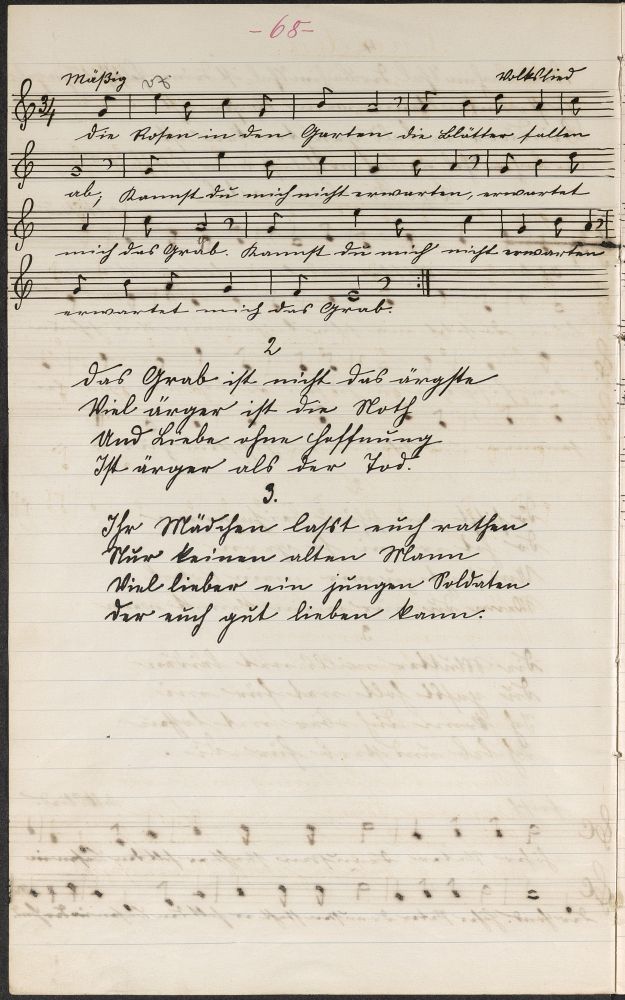 -68-
Mäßig
Volkslied
3/4
Die Rosen in den Garten die Blätter fallen
ab, Kannst du mich nicht erwarten, erwartet
mich das Grab. Kannst du mich nicht erwarten
erwartet mich das Grab.
2
Das Grab ist nicht das ärgste
Viel ärger ist die Noth
Und Liebe ohne Hoffnung
Ist ärger als der Tod.
3.
Ihr Mädchen lasst euch rathen
Nur keinen alten Mann
Viel lieber ein jungen Soldaten
Der euch gut lieben kann.